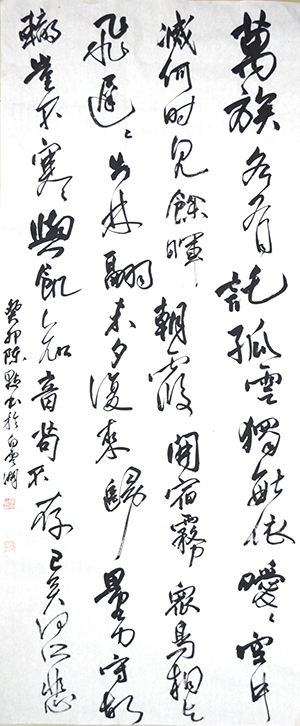 萬族各有託孤雲獨無依曖〻空中
滅何時見餘暉朝霞開宿霧眾鳥相與
飛遲〻出林翮未夕復來歸量力守故
轍豈不寒與飢知音苟不存已矣何所悲
癸卯陳書於白雲